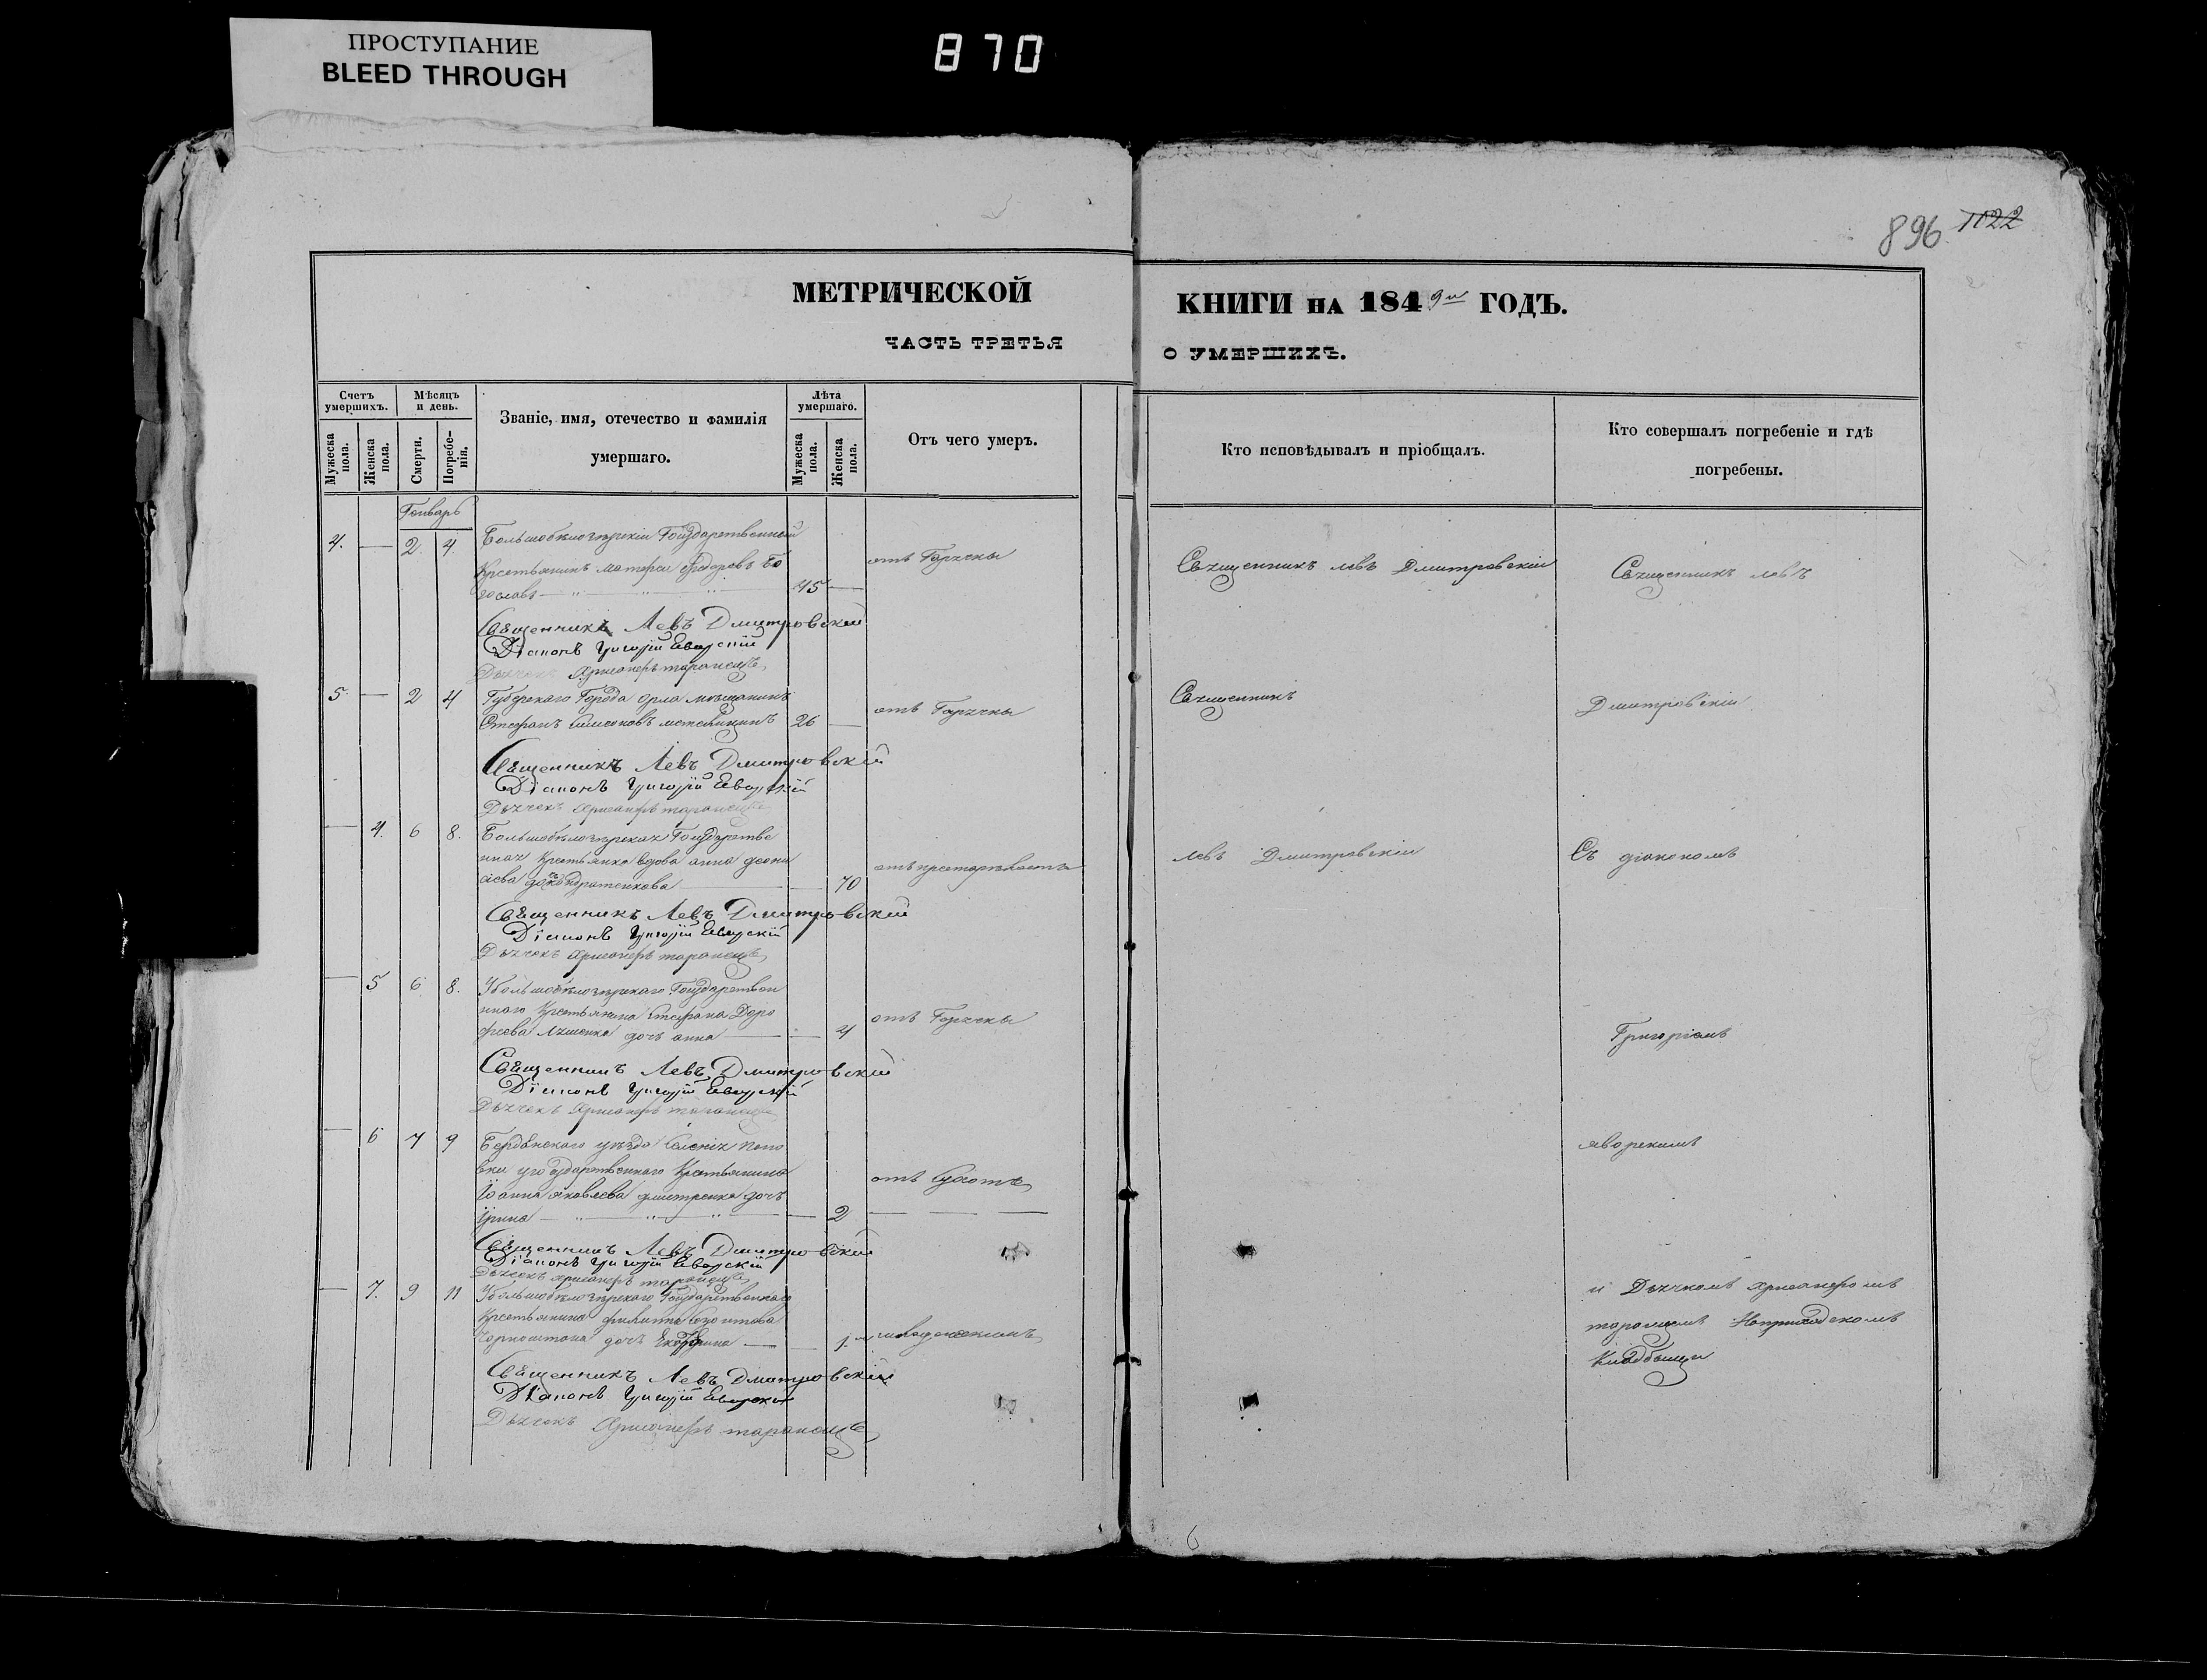 ПРОСТУПАНИЕ
BLEED THROUGH
870
896 1122
МЕТРИЧЕСКОЙ КНИГИ НА 1849й ГОДЪ.
ЧАСТЬ ТРЕТЬЯ О УМЕРШИХЪ.
Счетъ умершихъ.
Мужеска пола.
Женска пола.
Мѣсяцъ и день.
Смерти.
Погребенія.
Званіе, имя, отечество и фамилія
умершаго.
Лѣта умершаго.
Мужеска пола.
Женска пола.
Отъ чего умеръ.
Кто исповѣдывалъ и пріобщалъ.
Кто совершалъ погребеніе и гдѣ
погребены.
Генварь
4. — 2. 4. Большобѣлозѣрскій Государственный
Крестьянинъ Матфей Федоровъ Бо
гославъ 45 — отъ Горячки
Священникъ Левъ Дмитровскій
Священникъ Левъ
Священникъ Левъ Дмитровскій
Діаконъ Григорій Яворскій
Дьячекъ Хрисанфъ
5. — 2 4 Губернскаго Города Орла мѣщанинъ
Стефанъ Симеоновъ 26 — отъ Горячки
Священникъ
Дмитровскій
Священникъ Левъ Дмитровскій
Діаконъ Григорій Яворскій
Дьячекъ Хрисанфъ
— 4. 6 8. Большобѣлозѣрская Государстве
нная Крестьянка вдова анна
— 70 отъ престарѣлости
Левъ Дмитровскій
Съ діакономъ
Священникъ Левъ Дмитровскій
Діаконъ Григорій Яворскій
Дьячекъ Хрисанфъ
— 5 6 8. Убольшобѣлозѣрскаго Государствен
ннаго Крестьянина Стефана Доро
феева Ляшенка дочь анна — 4 отъ Горячки
Григоріемъ
Священникъ Левъ Дмитровскій
Діаконъ Григорій Яворскій
Дьячекъ Хрисанфъ
— 6 7 9 Бердянскаго уѣзда Селенія Попо
вки угосударственнаго Крестьянина
Іоанна яковлева дмитренка дочь
Ірина — 2 отъ Сухоты
яворскимъ
Священникъ Левъ Дмитровскій
Діаконъ Григорій Яворскій
Дьячекъ Хрисанфъ
— 7. 9 11 Убольшобѣлозѣрскаго Государственнаго
Крестьянина филиппа
дочь Екатерина — 1.
и Дьячкомъ Хрисанфомъ
Наприходскомъ
Кладбищи
Священникъ Левъ Дмитровскій
Діаконъ Григорій Яворскій
Дьячекъ Хрисанфъ